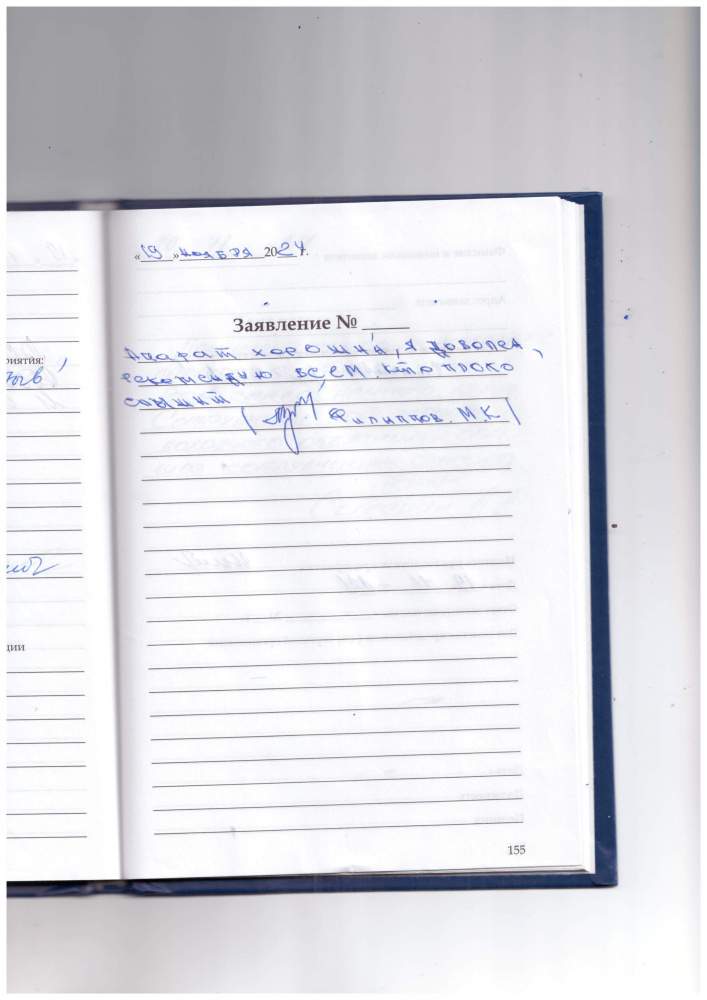 «19» ноября 2024 г.
Заявление №
Апарат хороший, я доволен,
рекомендую всем, кто плохо
слышит
Филиппов. М.К
риятия:
ции
155